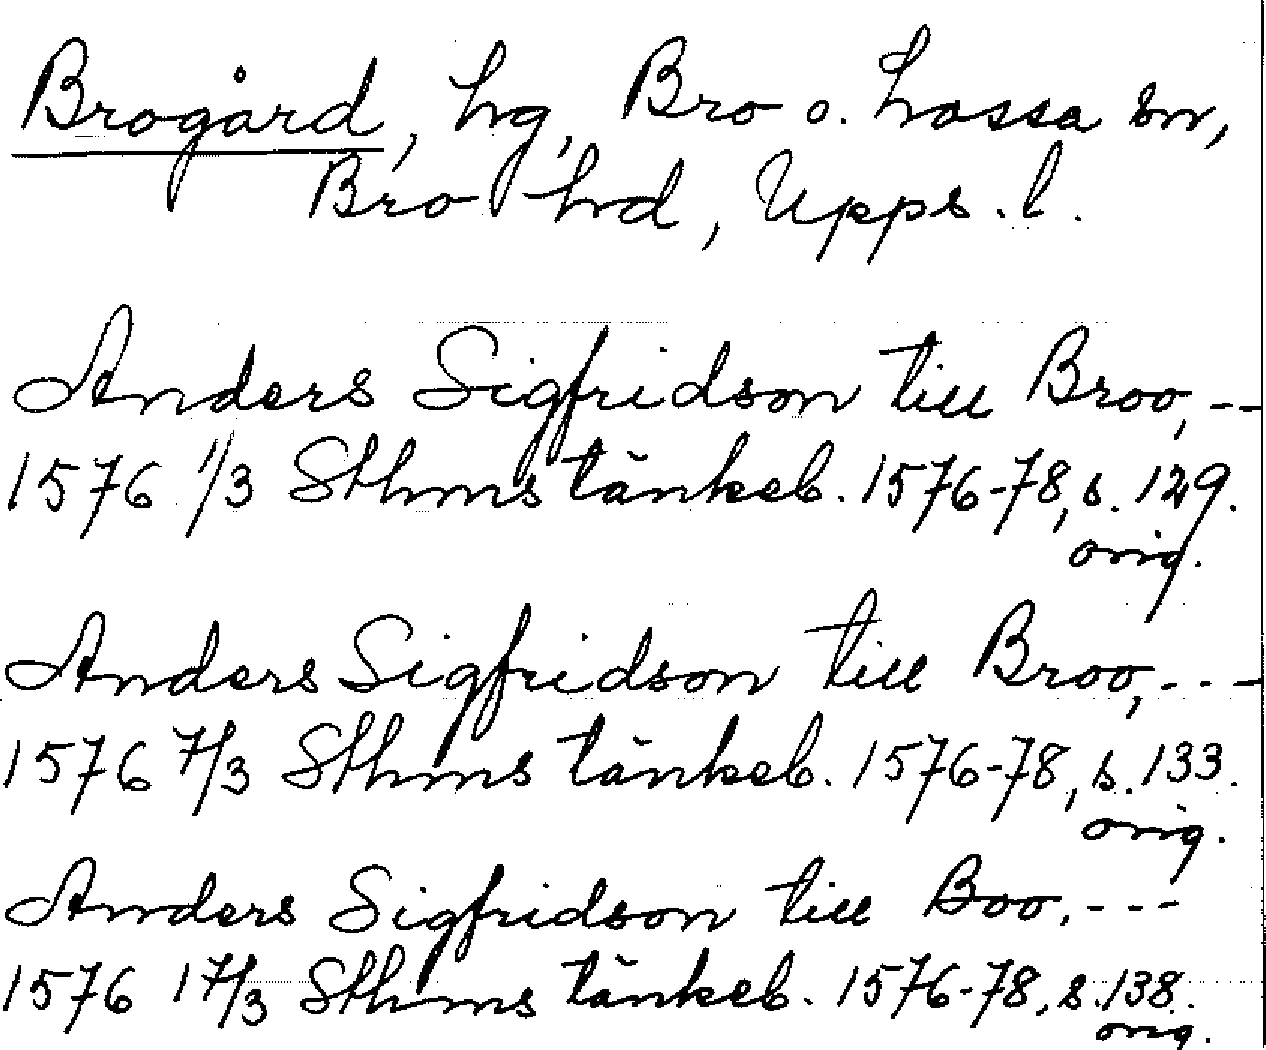 Brogård, hg, Bro o. Lossa sn,
Bro hd, Upps. l.
Anders Sigfridson till Broo, --
1576 1/3 Sthms tänkeb. 1576-78, s. 129.
orig.
Anders Sigfridson till Broo, ---
1576 7/3 Sthms tänkeb. 1576-78, s. 133.
orig.
Anders Sigfridson till Boo, ---
1576 17/3 Sthms tänkeb. 1576-78, s. 138.
orig.